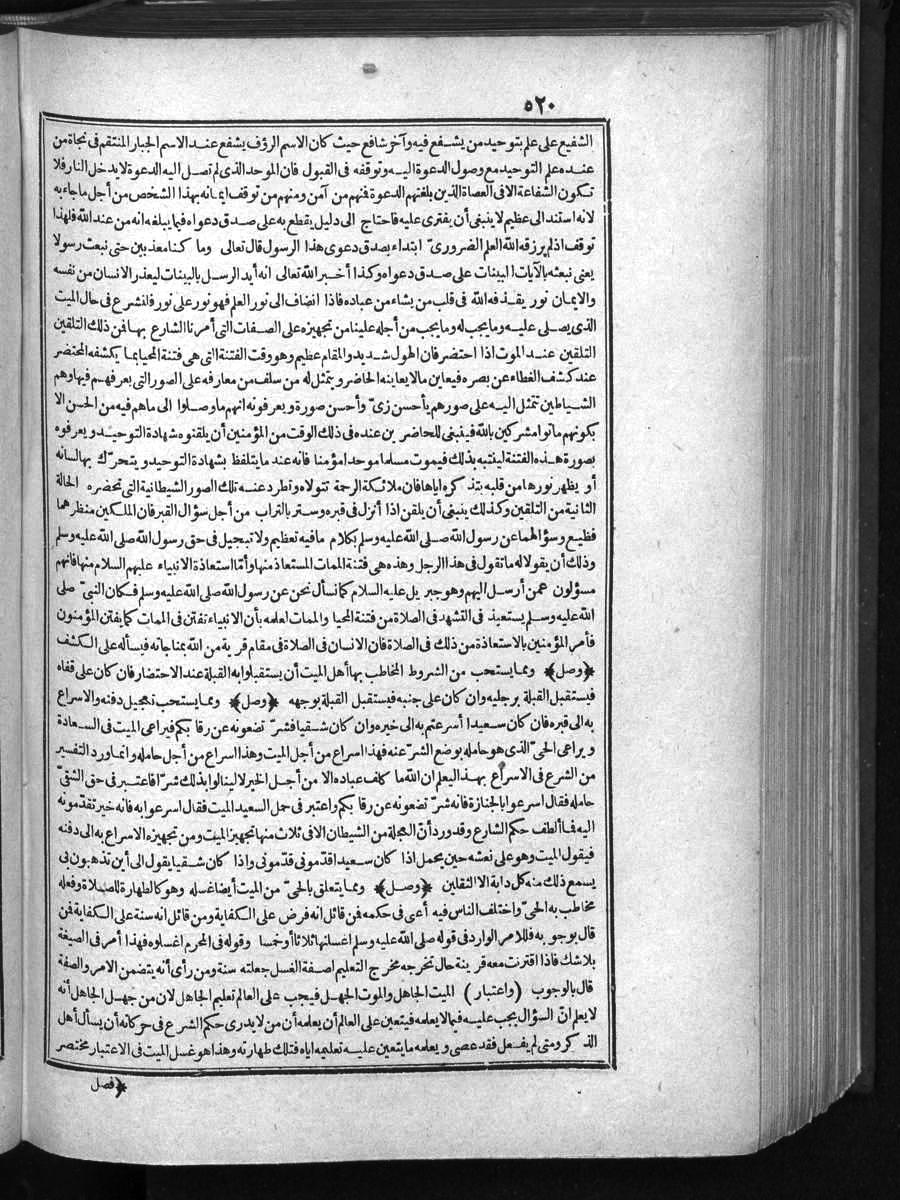 ٥٢٠
الشفيع على علم بتوحيد من يشفع فيه وآخر شافع حيث كان الاسم الرؤف يشفع عند الاسم الجبار المنتقم فى نجاة من
عنده علم التوحيد مع وصول الدعوة اليه وتوقفه فى القبول فان الموحد الذى لم تصل اليه الدعوة لا يدخل النار فلا
تكون الشفاعة الا فى العصاة الذين بلغتهم الدعوة فنهم من آمن ومنهم من توقف ايمانه بهذا الشخص من أجل ما جاء به
لانه استند الى عظيم لا ينبغى أن يفترى عليه فاحتاج الى دليل يقطع به على صدق دعواه فيما يبلغه انه من عند الله فلهذا
توقف اذ لم يرزقه الله العلم الضرورىّ ابتداء بصدق دعوى هذا الرسول قال تعالى وما كنا معذبين حتى نبعث رسولا
يعنى نبعثه بالآيات البينات على صدق دعواه وكذا أخبر الله تعالى انه أيد الرسل بالبينات ليعذر الانسان من نفسه
والايمان نور يقذفه الله فى قلب من يشاء من عباده فاذا انضاف الى نور العلم فهو نور على نور فلنشرع فى حال الميت
الذى يصلى عليه وما يجب له وما يجب من أجله علينا من تجهيزه على الصفات التى أمرنا الشارع بها فمن ذلك التلقين
التلقين عند الموت اذا احتضر فان الهول شديد والمقام عظيم وهو وقت الفتنة التى هى فتنة المحيا بما يكشفه المحتضر
عند كشف الغطاء عن بصره فيعاين ما لا يعاينه الحاضر ويتمثل له من سلف من معارفه على الصور التى يعرفهم فيها وهم
الشياطين تتمثل اليه على صورهم بأحسن زىّ وأحسن صورة ويعرفونه انهم ما وصلوا الى ما هم فيه من الحسن الا
بكونهم ماتوا مشركين بالله فينبغى للحاضرين عنده فى ذلك الوقت من المؤمنين أن يلقنوه شهادة التوحيد ويعرفوه
بصورة هذه الفتنة لينتبه بذلك فيموت مسلما موحدا مؤمنا فانه عند ما يتلفظ بشهادة التوحيد ويتحرّك بها لسانه
أو يظهر نورها من قلبه بتذكره اياها فان ملائكة الرحمة تتولاه وتطرد عنه تلك الصور الشيطانية التى تحضره الحالة
الثانية من التلقين وكذلك ينبغى أن يلقن اذا أنزل فى قبره وستر بالتراب من أجل سؤال القبر فان الملكين منظرهما
فظيع وسؤالهما عن رسول الله صلى الله عليه وسلم بكلام ما فيه تعظيم ولا تبجيل فى حق رسول الله صلى الله عليه وسلم
وذلك أن يقولا له ما تقول فى هذا الرجل وهذه هى فتنة الممات المستعاذ منها وأمّا استعاذة الانبياء عليهم السلام منها فانهم
مسؤلون عمن أرسل اليهم وهو جبريل عليه السلام كما نسأل نحن عن رسول الله صلى الله عليه وسلم فكان النبىّ صلى
الله عليه وسلم يستعيذ فى التشهد فى الصلاة من فتنة المحيا والممات لعلمه بأن الانبياء تفتن فى الممات كما يفتن المؤمنون
فأمر المؤمنين بالاستعاذة من ذلك فى الصلاة فان الانسان فى الصلاة فى مقام قربة من الله بمناجاته فيسأله على الكشف
﴿وصل﴾ ومما يستحب من الشروط المخاطب بها أهل الميت أن يستقبلوا به القبلة عند الاحتضار فان كان على قفاه
فيستقبل القبلة برجليه وان كان على جنبه فيستقبل القبلة بوجهه ﴿وصل﴾ ومما يستحب تعجيل دفنه والاسراع
به الى قبره فان كان سعيدا أسرعتم به الى خيره وان كان شقيا فشرّ تضعونه عن رقابكم فيراعى الميت فى السعادة
ويراعى الحىّ الذى هو حامله بوضع الشرّ عنه فهذا اسراع من أجل الميت وهذا اسراع من أجل حامله وانما ورد التفسير
من الشرع فى الاسراع بهذا ليعلم ان الله ما كلف عباده الا من أجل الخير لا لينالوا بذلك شرّا فاعتبر فى حق الشقىّ
حامله فقال اسرعوا بالجنازة فانه شرّ تضعونه عن رقابكم واعتبر فى حمل السعيد الميت فقال اسرعوا به فانه خير تقدّمونه
اليه فما ألطف حكم الشارع وقد ورد أنّ العجلة من الشيطان الا فى ثلاث منها تجهيز الميت ومن تجهيزه الاسراع به الى دفنه
فيقول الميت وهو على نعشه حين يحمل اذا كان سعيدا قدّمونى قدّمونى واذا كان شقيا يقول الى أين تذهبون بى
يسمع ذلك منه كل دابة الا الثقلين ﴿وصل﴾ ومما يتعلق بالحىّ من الميت أيضا غسله وهو كالطهارة للصلاة وفعله
مخاطب به الحىّ واختلف الناس فيه أعى فى حكمه فمن قائل انه فرض على الكفاية ومن قائل انه سنة على الكفاية فمن
قال بوجوبه فللامر الوارد فى قوله صلى الله عليه وسلم اغسلنها ثلاثا أو خمسا وقوله فى المحرم اغسلوه فهذا أمر فى الصيغة
بلا شك فاذا اقترنت معه قرينة حال تخرجه مخرج التعليم لصفة الغسل جعلته سنة ومن رأى أنه يتضمن الامر والصفة
قال بالوجوب (واعتبار) الميت الجاهل والموت الجهل فيجب على العالم تعليم الجاهل لان من جهل الجاهل أنه
لا يعلم انّ السؤال يجب عليه فيما لا يعلمه فيتعين على العالم أن يعلمه أن من لا يدرى حكم الشرع فى حركاته أن يسأل أهل
الذكر ومتى لم يفعل فقد عصى ويعلمه ما يتعين عليه تعليمه اياه فتلك طهارته وهذا هو غسل الميت فى الاعتبار مختصر
﴿فصل